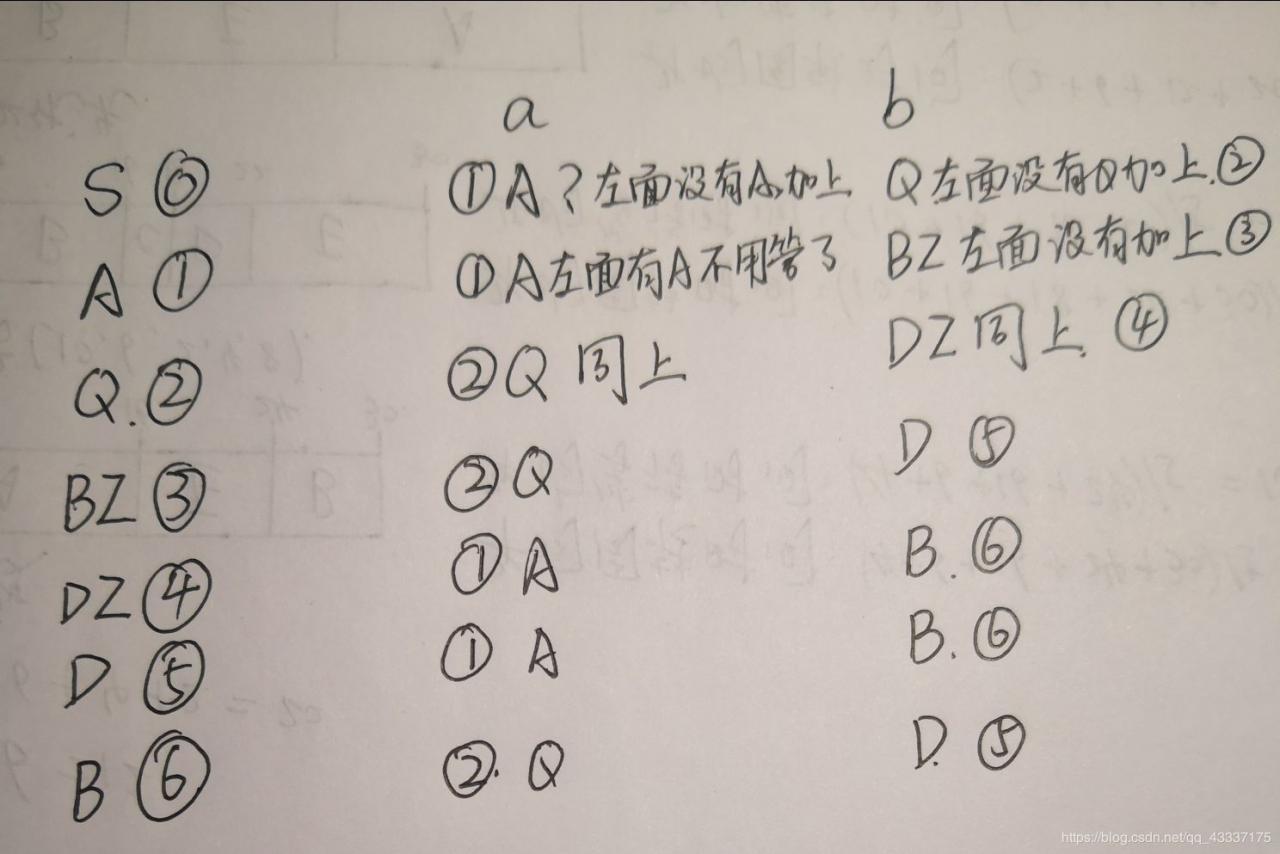 a b
S ⓪ ①A？左面没有A,加上 Q左面没有Q加上.②
A ① ①A左面有A不用管了 BZ左面没有加上③
Q.② ②Q 同上 DZ同上.④
BZ③ ②Q D ⑤
DZ④ ①A B.⑥
D ⑤ ① A B.⑥
B ⑥ ②. Q D.⑤
https://blog.csdn.net/qq_43337175